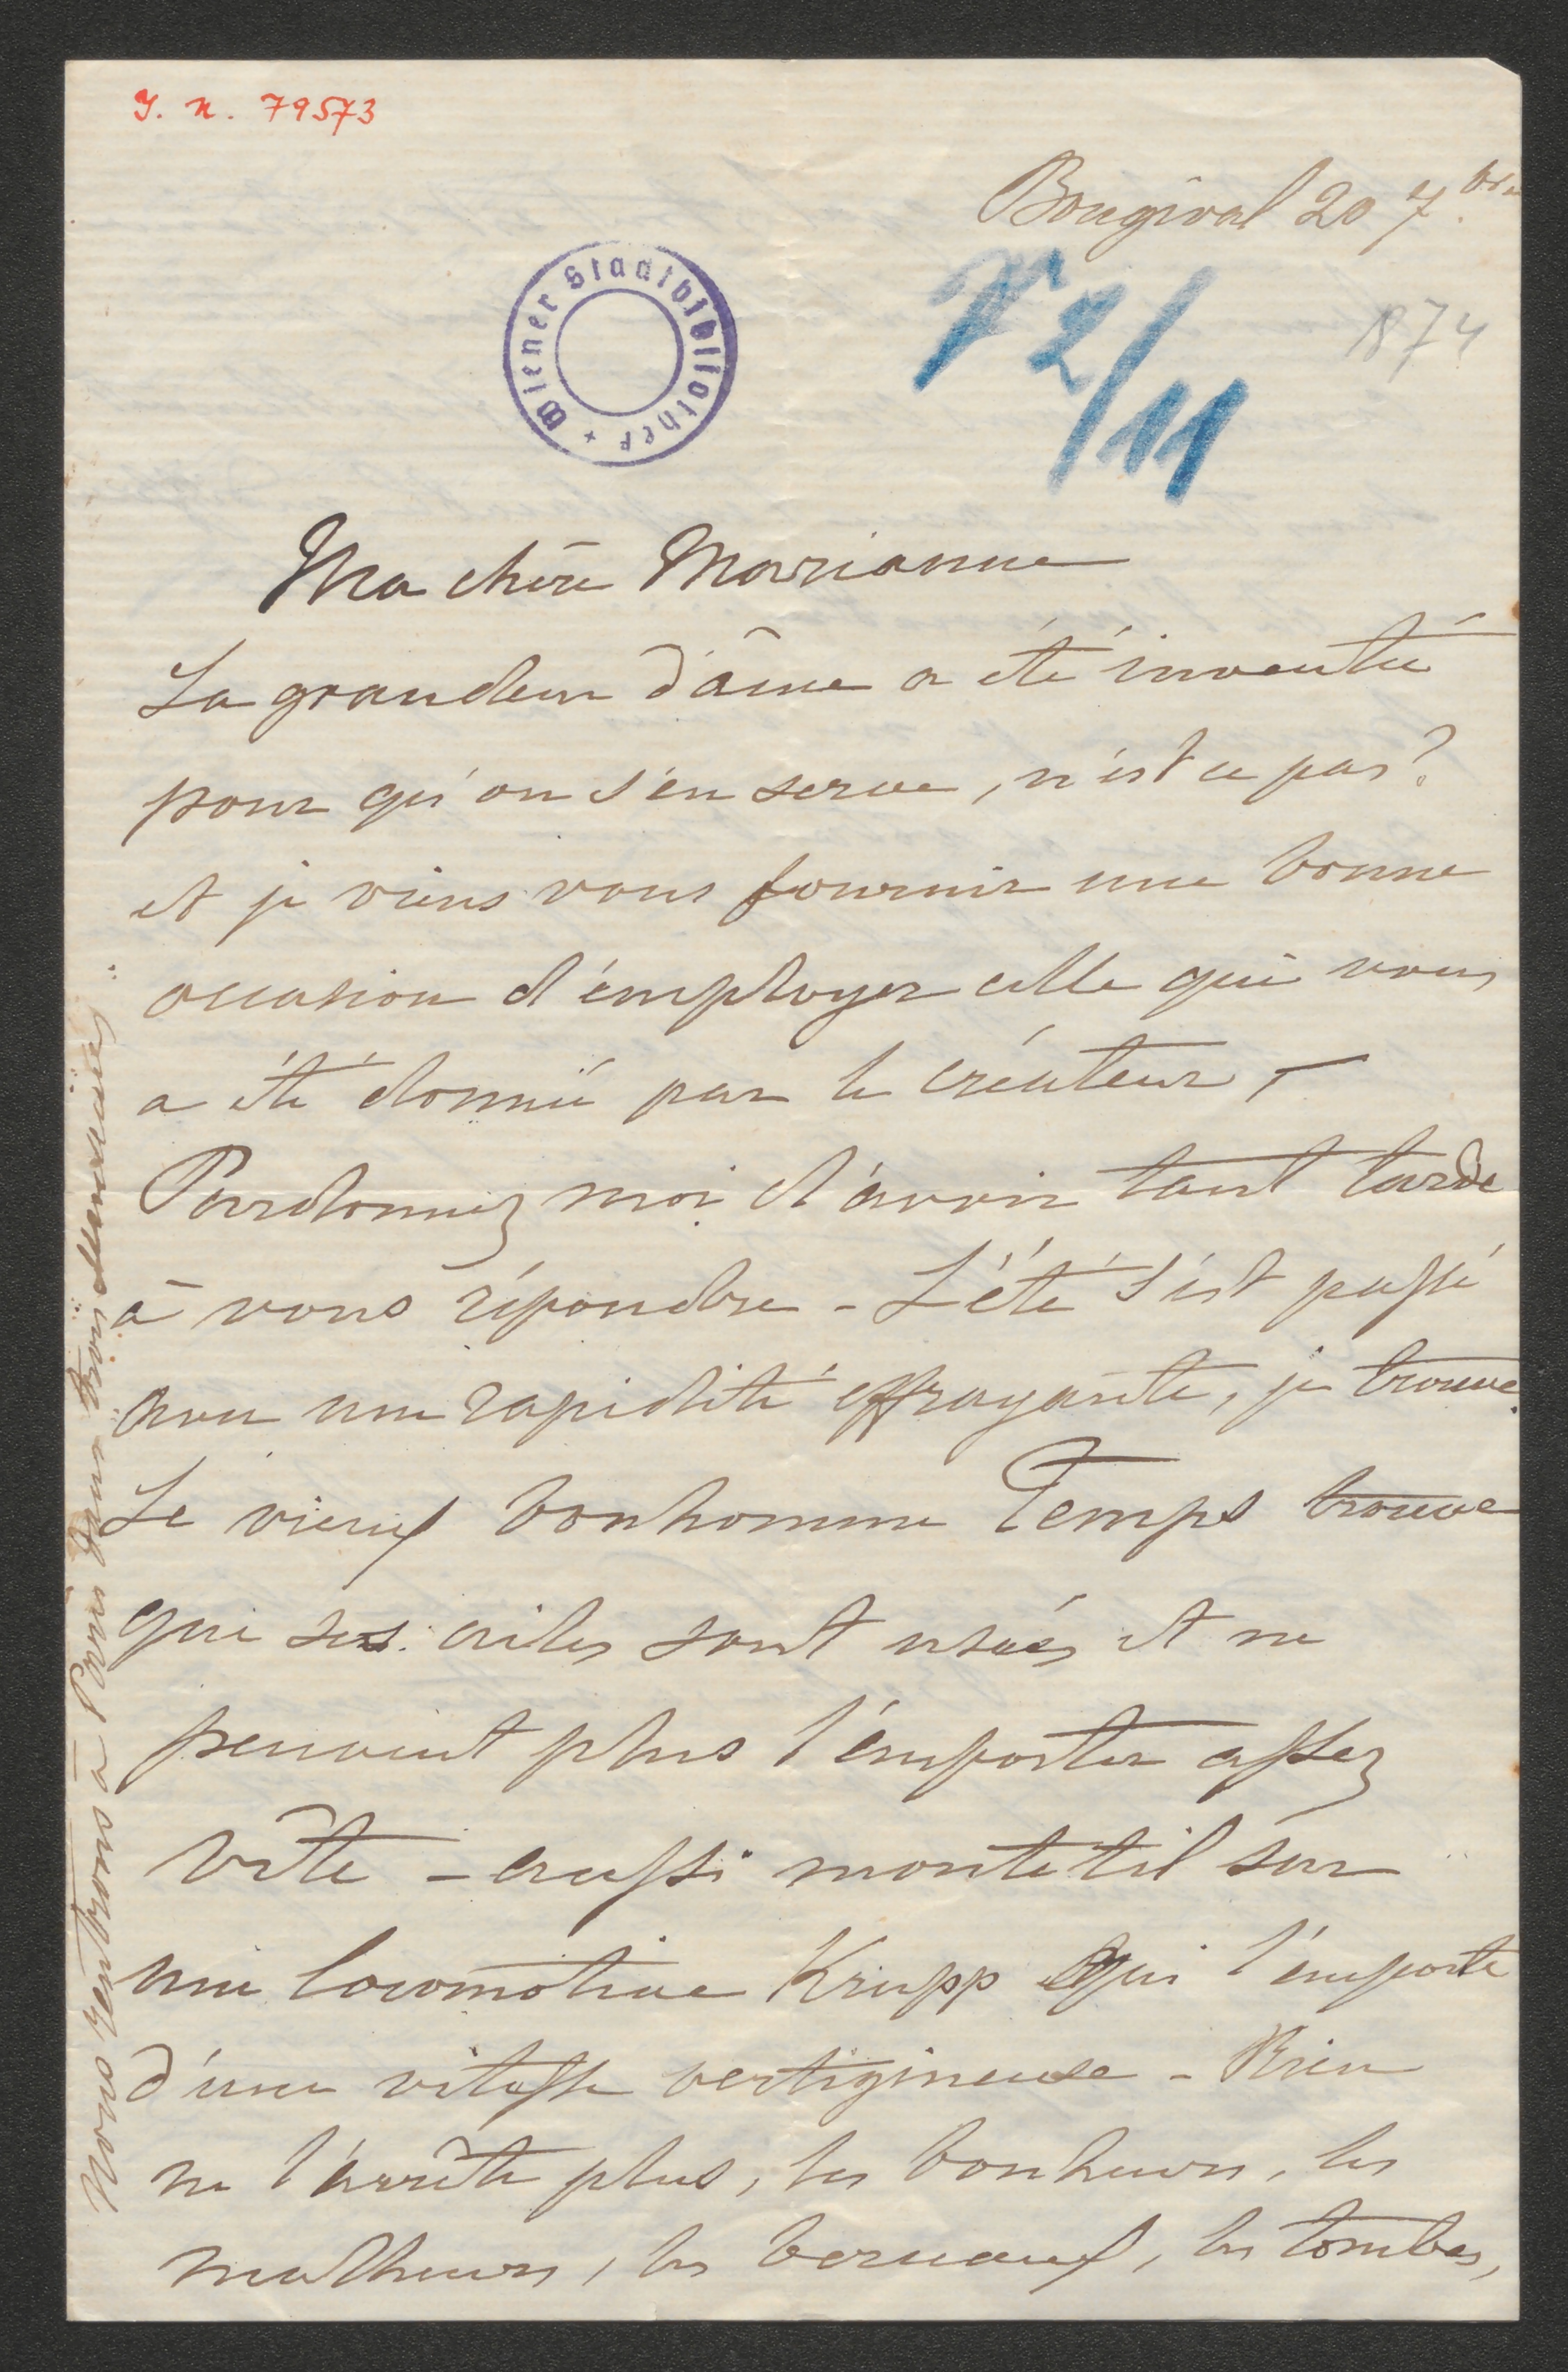 J. N. 79573
Bougival 20 7.bre
1874
2/11
Wiener Stadtbibliothek
Ma chère Marianne
La grandeur d'âme a été inventée
pour qu'on s'en serve, n'est ce pas?
et je viens vous fournir une bonne
occasion d'employer celle qui vous
a été donnée par le créateur, –
Pardonnez moi d'avoir tant tardé
à vous répondre - L'été s'est passé
avec une rapidité effrayante, je trouve.
Le vieux bonhomme Temps trouve
que ses ailes sont usées et ne
peuvent plus l'emporter assez
vîte - aussi monte til sur
une locomotive Krupp qui l'emporte
d'une vitesse vertigineuse - Rien
ne l'arrête plus, les bonheurs, les
malheurs, les berceaux, les tombes,
Nous rentrons à Paris dans trois semaines